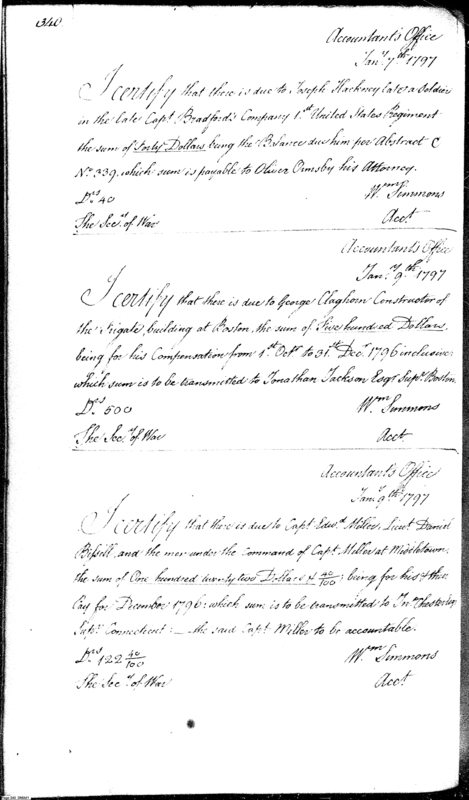 340
Accountant's Office
Jany. 7th 1797
I certify that there is due to Joseph Hackney late a Soldier
in the late Capt. Bradford's Company 1st United States Regiment
the sum of Forty Dollars being the Balance due him per Abstract C
No. 339. which sum is payable to Oliver Ormsby his Attorney.
Drs 40
Wm Simmons
The Secy. of War
Acct
Accountant's Office
Jany. 9th 1797
I certify that there is due to George Claghorn Constructor of
the Frigate building at Boston, the sum of Five hundred Dollars,
being for his Compensation from 1st Octr. to 31st Decr. 1796 inclusive:
which sum is to be transmitted to Jonathan Jackson Esqr Supr. Boston
Drs 500
Wm Simmons
The Secy. of War
Acct
Accountant's Office
Jany. 9th 1797
I certify that there is due to Capt Edwd. Miller, Lieut Daniel
Bissell and the men under the command of Capt. Miller at Middletown,
the sum of One hundred twenty two Dollars & 40/100; being for his & their
Pay for December 1796: which sum is to be transmitted to Jno. Chester Esqr
Supr. Connecticut: _ the said Capt. Miller to be accountable.
Drs. 122 40/100
Wm Simmons
The Secy. of War
Acct